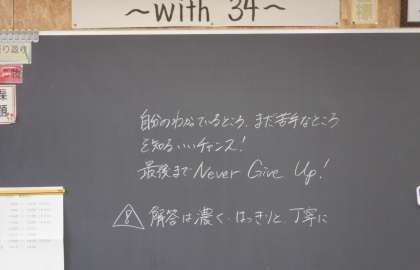 ~with 34~
自分のわかっているところ、まだ苦手なところ
を知るいいチャンス!
最後まで Never Give Up!
解答は濃く・はっきりと、丁寧に